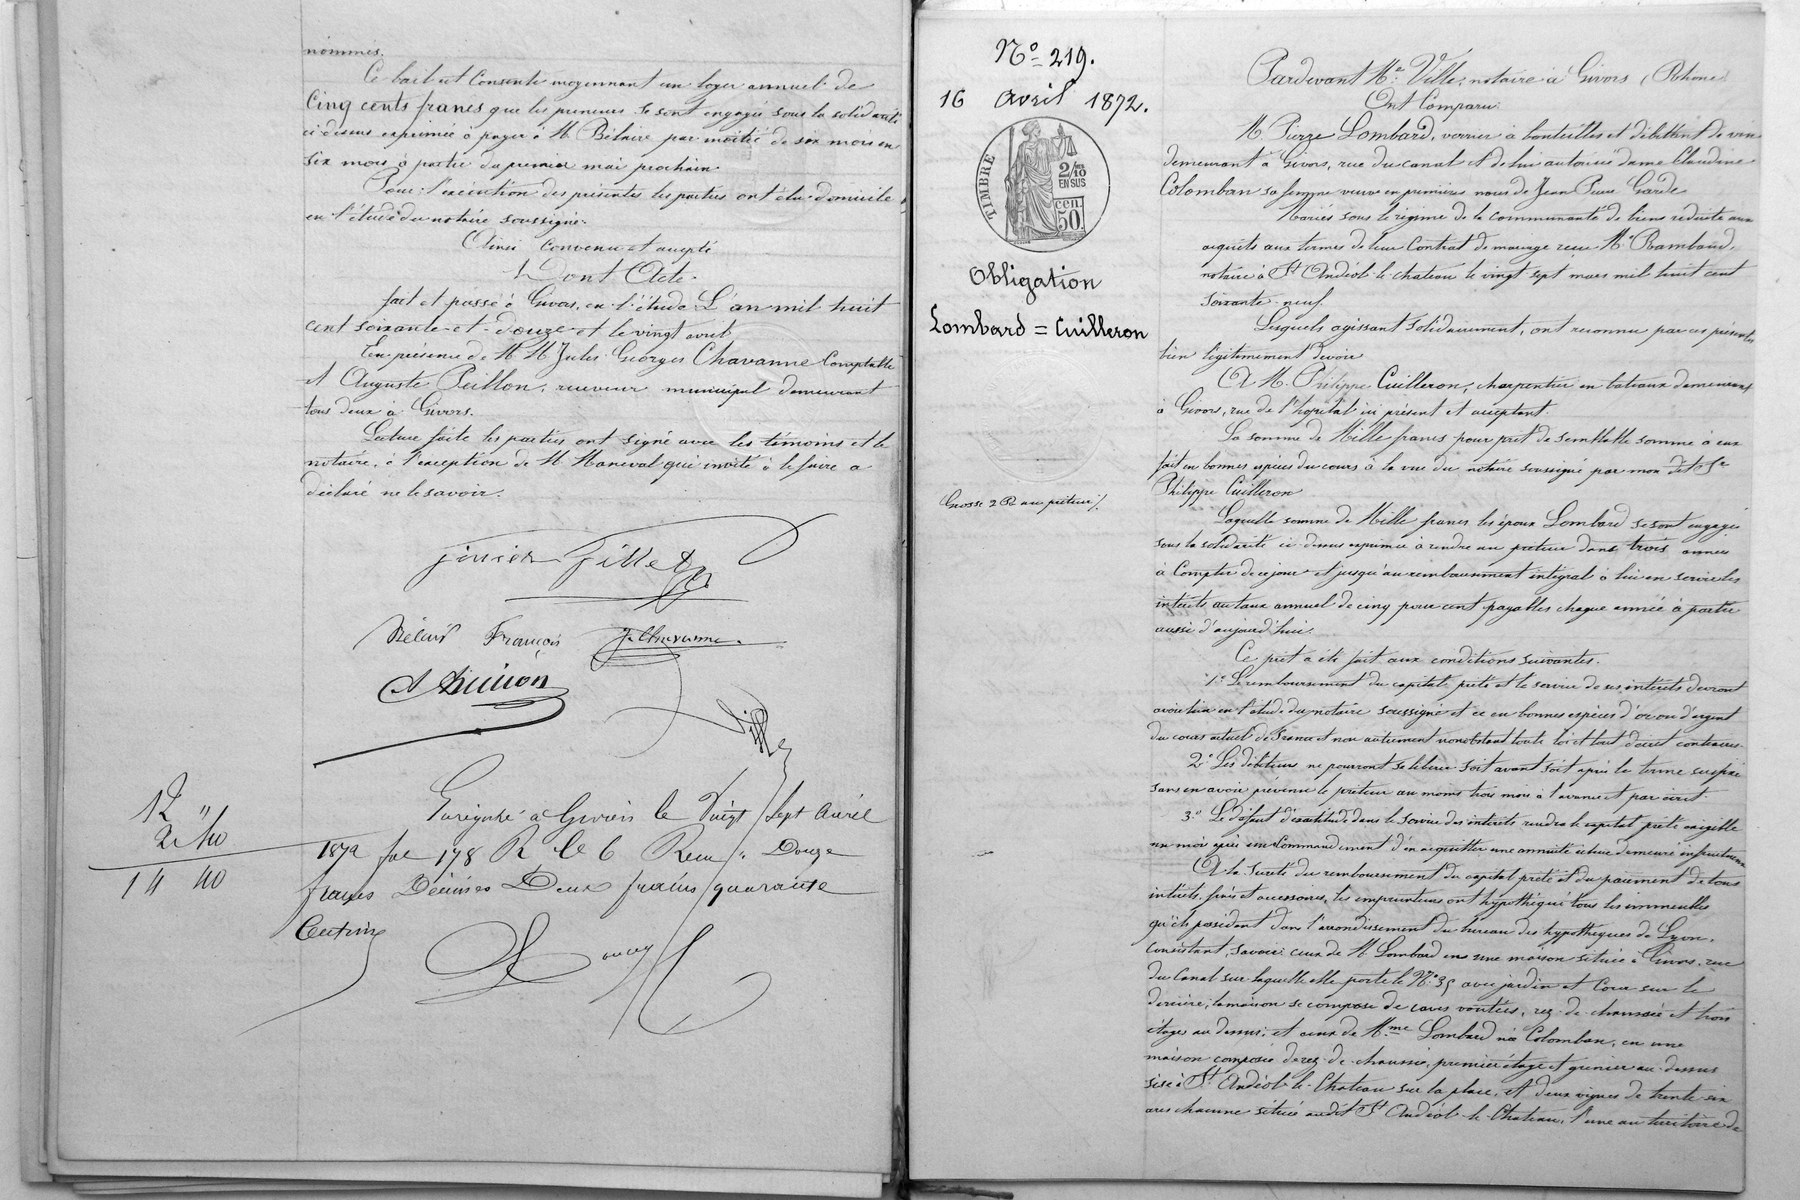 nommés.
Ce bail est consenti moyennant un loyer annuel de
Cinq cents francs que les preneurs se sont engagés sous la solidarité
ci-dessus exprimée à payer à M. Bélair par moitié de six mois en
six mois à partir du premier mai prochain.
Pour l'exécution des présentes les parties ont élu domicile
en l'étude du notaire soussigné.
Ainsi convenu et accepté
Dont Acte.
fait et passé à Givors, en l'étude L'an mil huit
cent soixante-et-douze et le vingt avril
En présence de M.M. Jules Georges Chavanne Comptable
et Auguste Puillon, receveur municipal demeurant
tous deux à Givors.
Lecture faite les parties ont signé avec les témoins et le
notaire, à l'exception de M. Maneval qui invité à le faire a
déclaré ne le savoir.
Fillet
Bélair François J. Chavanne
Ville
12 "
2 40
14 40
Enregistré à Givors le Vingt Sept Avril
1872 fol 178 R Ce 6 Reçu Douze
francs Décimes Deux francs quarante
Centimes
N° 219.
16 Avril 1872.
TIMBRE
2/10
EN SUS
50 cen.
Obligation
Lombard = Cuilleron
Grosse 2 R au prêteur
Pardevant Me Ville, notaire à Givors (Rhône)
Ont Comparu:
M. Pierre Lombard, verrier à bouteilles et débitant de vin
demeurant à Givors, rue du canal et de lui autorisée dame Claudine
Colomban sa femme veuve en premières noces de Jean Pierre Garde
Mariés sous le régime de la communauté de biens réduite aux
acquêts aux termes de leur contrat de mariage reçu Me Rambaud,
notaire à St Andéol-le-Chateau le vingt sept mars mil huit cent
soixante-neuf.
Lesquels agissant solidairement, ont reconnu par ces présentes
bien légitimement devoir
A M. Philippe Cuilleron, charpentier en bateaux demeurant
à Givors, rue de l'hopital ici présent et acceptant.
La somme de Mille francs pour prêt de semblable somme à eux
fait en bonnes espèces du cours à la vue du notaire soussigné par mon dit Sr
Philippe Cuilleron
Laquelle somme de Mille francs les époux Lombard se sont engagés
sous la solidarité ci-dessus exprimée à rendre au prêteur dans trois années
à Compter de ce jour et jusqu'au remboursement intégral à lui en servir les
intérêts au taux annuel de cinq pour cent payables chaque année à partir
aussi d'aujourd'hui.
Ce prêt a été fait aux conditions suivantes.
1° Le remboursement du capital prêté et le service de ses intérêts devront
avoir lieu en l'étude du notaire soussigné et ce en bonnes espèces d'or ou d'argent
du cours actuel de France et non autrement nonobstant toute loi et tout décret contraires.
2° Les débiteurs ne pourront se libérer soit avant soit après le terme susfixé
sans en avoir prévenu le prêteur au moins trois mois à l'avance et par écrit.
3° Le défaut d'exactitude dans le service des intérêts rendra le capital prêté exigible
un mois après un Commandement d'en acquitter une annuité échue demeuré infructueux
A la sureté du remboursement du capital prêté et du paiement de tous
intérêts, frais et accessoires, les emprunteurs ont hypothéqué tous les immeubles
qu'ils possèdent dans l'arrondissement du bureau des hypothèques de Lyon,
consistant, savoir: ceux de M. Lombard en une maison située à Givors, rue
du Canal sur laquelle elle porte le N° 35 avec jardin et Cour sur le
derrière, la maison se compose de caves voûtées, rez-de-chaussée et trois
étages au dessus; et ceux de Mme Lombard née Colomban, en une
maison composée de rez-de-chaussée, premier étage et grenier au-dessus
sise à St Andéol-le-Chateau sur la place, et deux vignes de trente-six
ares chacune situées audit St Andéol-le-Chateau, l'une au territoire de